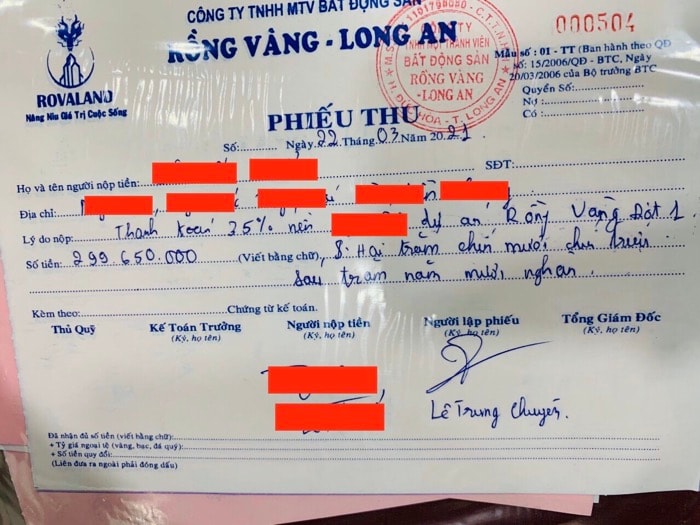 CÔNG TY TNHH MTV BẤT ĐỘNG SẢN
RỒNG VÀNG - LONG AN
ROVALAND
Nâng Niu Giá Trị Cuộc Sống
1101798050 - C.T.T.N.H
M.S.
TY
TNHH MỘT THÀNH VIÊN
BẤT ĐỘNG SẢN
RỒNG VÀNG
-LONG AN
H. ĐỨC HÒA - T. LONG AN
000504
Mẫu số : 01 - TT (Ban hành theo QĐ
số: 15/2006/QĐ - BTC, Ngày
20/03/2006 của Bộ trưởng BTC
Quyển Số:
Nợ :
Có :
PHIẾU THU
Số: Ngày 22 Tháng 03 Năm 2021
Họ và tên người nộp tiền: SĐT:
Địa chỉ:
Lý do nộp: Thanh toán 35% nền dự án Rồng Vàng Đợt 1
Số tiền: 299.650.000 (Viết bằng chữ), Hai trăm chín mươi chín triệu
sáu trăm năm mươi nghàn.
Kèm theo: Chứng từ kế toán.
Thủ Quỹ Kế Toán Trưởng Người nộp tiền Người lập phiếu Tổng Giám Đốc
(Ký, họ tên) (Ký, họ tên) (Ký, họ tên) (Ký, họ tên)
Lê Trung Chuyển.
Đã nhận đủ số tiền (viết bằng chữ):
+ Tỷ giá ngoại tệ (vàng, bạc, đá quý):
+ Số tiền quy đổi:
(Liên đưa ra ngoài phải đóng dấu)